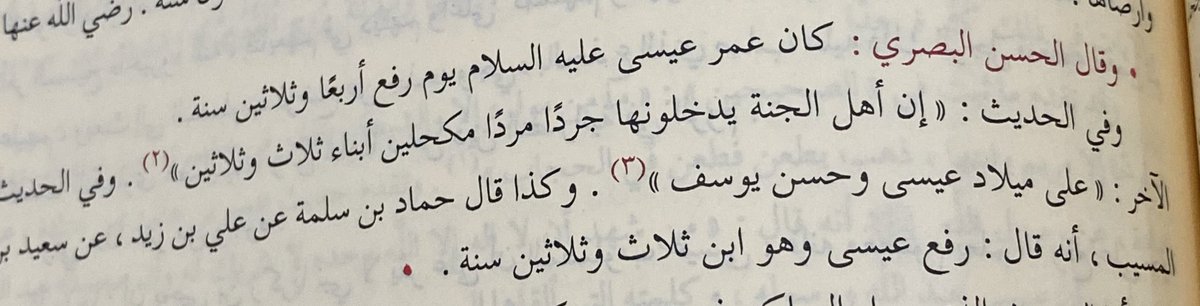 وأرضاها
رضي الله عنها
• وقال الحسن البصري : كان عمر عيسى عليه السلام يوم رفع أربعًا وثلاثين سنة .
وفي الحديث : « إن أهل الجنة يدخلونها جردًا مردًا مكحلين أبناء ثلاث وثلاثين »(٢) . وفي الحديث
الآخر : « على ميلاد عيسى وحسن يوسف »(٣) . وكذا قال حماد بن سلمة عن علي بن زيد ، عن سعيد بن
المسيب ، أنه قال : رفع عيسى وهو ابن ثلاث وثلاثين سنة . •